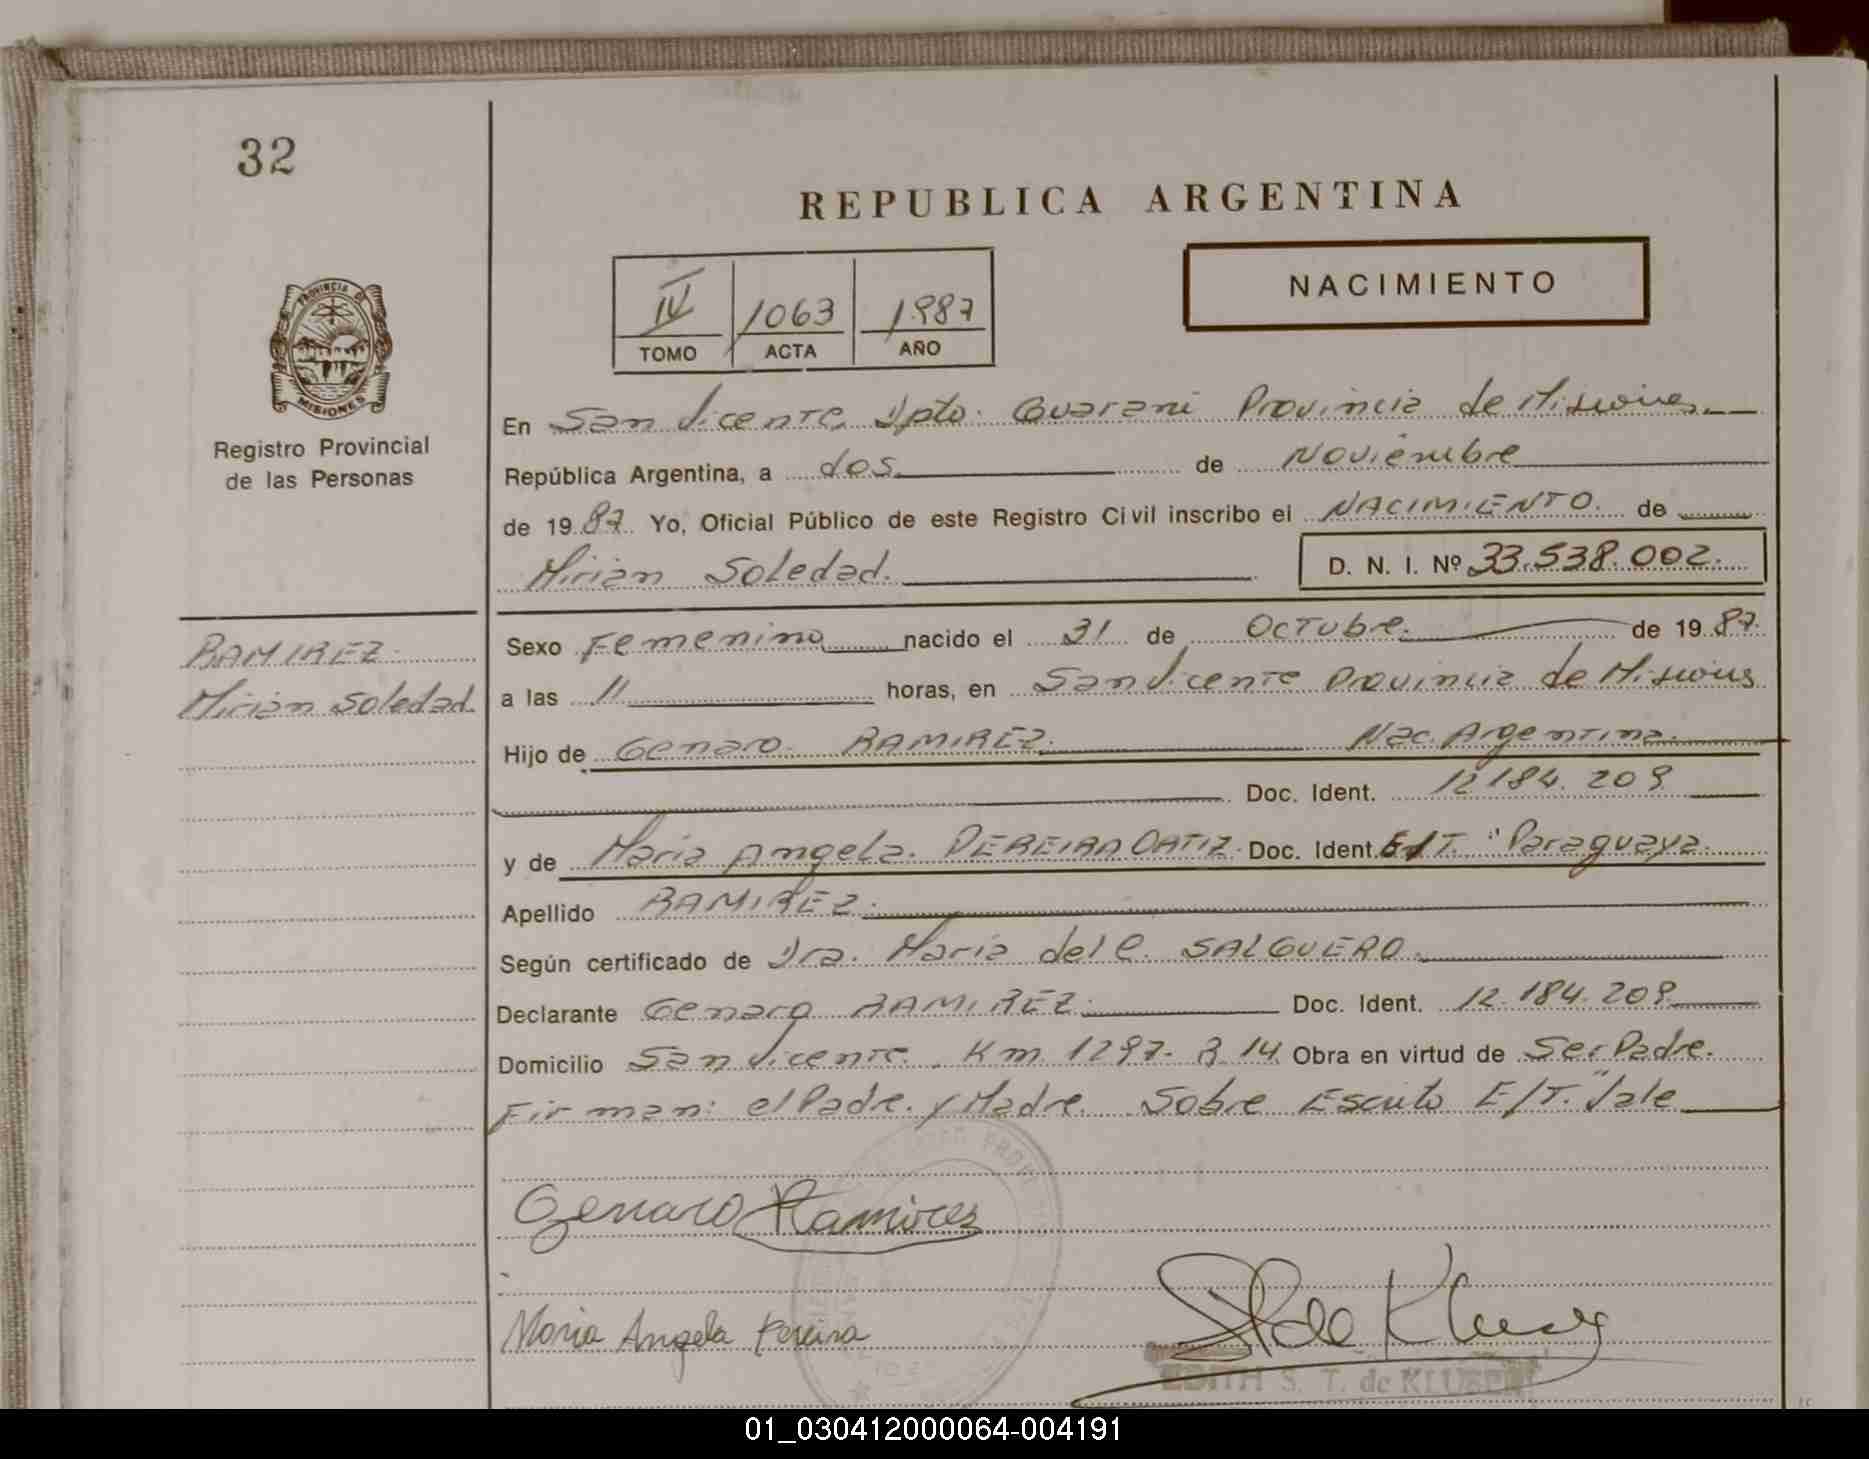 32
REPUBLICA ARGENTINA
NACIMIENTO
IV 1063 1987
TOMO ACTA AÑO
PROVINCIA DE
MISIONES
Registro Provincial
de las Personas
En San Vicente, Dpto. Guarani Provincia de Misiones
República Argentina, a dos de Noviembre
de 1987. Yo, Oficial Público de este Registro Civil inscribo el NACIMIENTO. de
Mirian Soledad. D. N. I. Nº 33.538.002.
RAMIREZ
Mirian Soledad.
Sexo Femenino nacido el 31 de Octubre. de 1987.
a las 11 horas, en San Vicente Provincia de Misiones
Hijo de Genaro RAMIREZ. Nac. Argentina.
Doc. Ident. 12.184.209
y de Maria Angela. PEREIRA ORTIZ. Doc. Ident. E/T. "Paraguaya.
Apellido RAMIREZ.
Según certificado de Dra. Maria del C. SALGUERO.
Declarante Genaro RAMIREZ. Doc. Ident. 12.184.209
Domicilio San Vicente. Km 1297. 14 Obra en virtud de Ser Padre.
Firman: el Padre. y Madre. Sobre Escrito E/T. "Vale
Genaro Ramirez
Maria Angela Pereira
de Kluser
EDITH S. T. de KLUSER
01_030412000064-004191